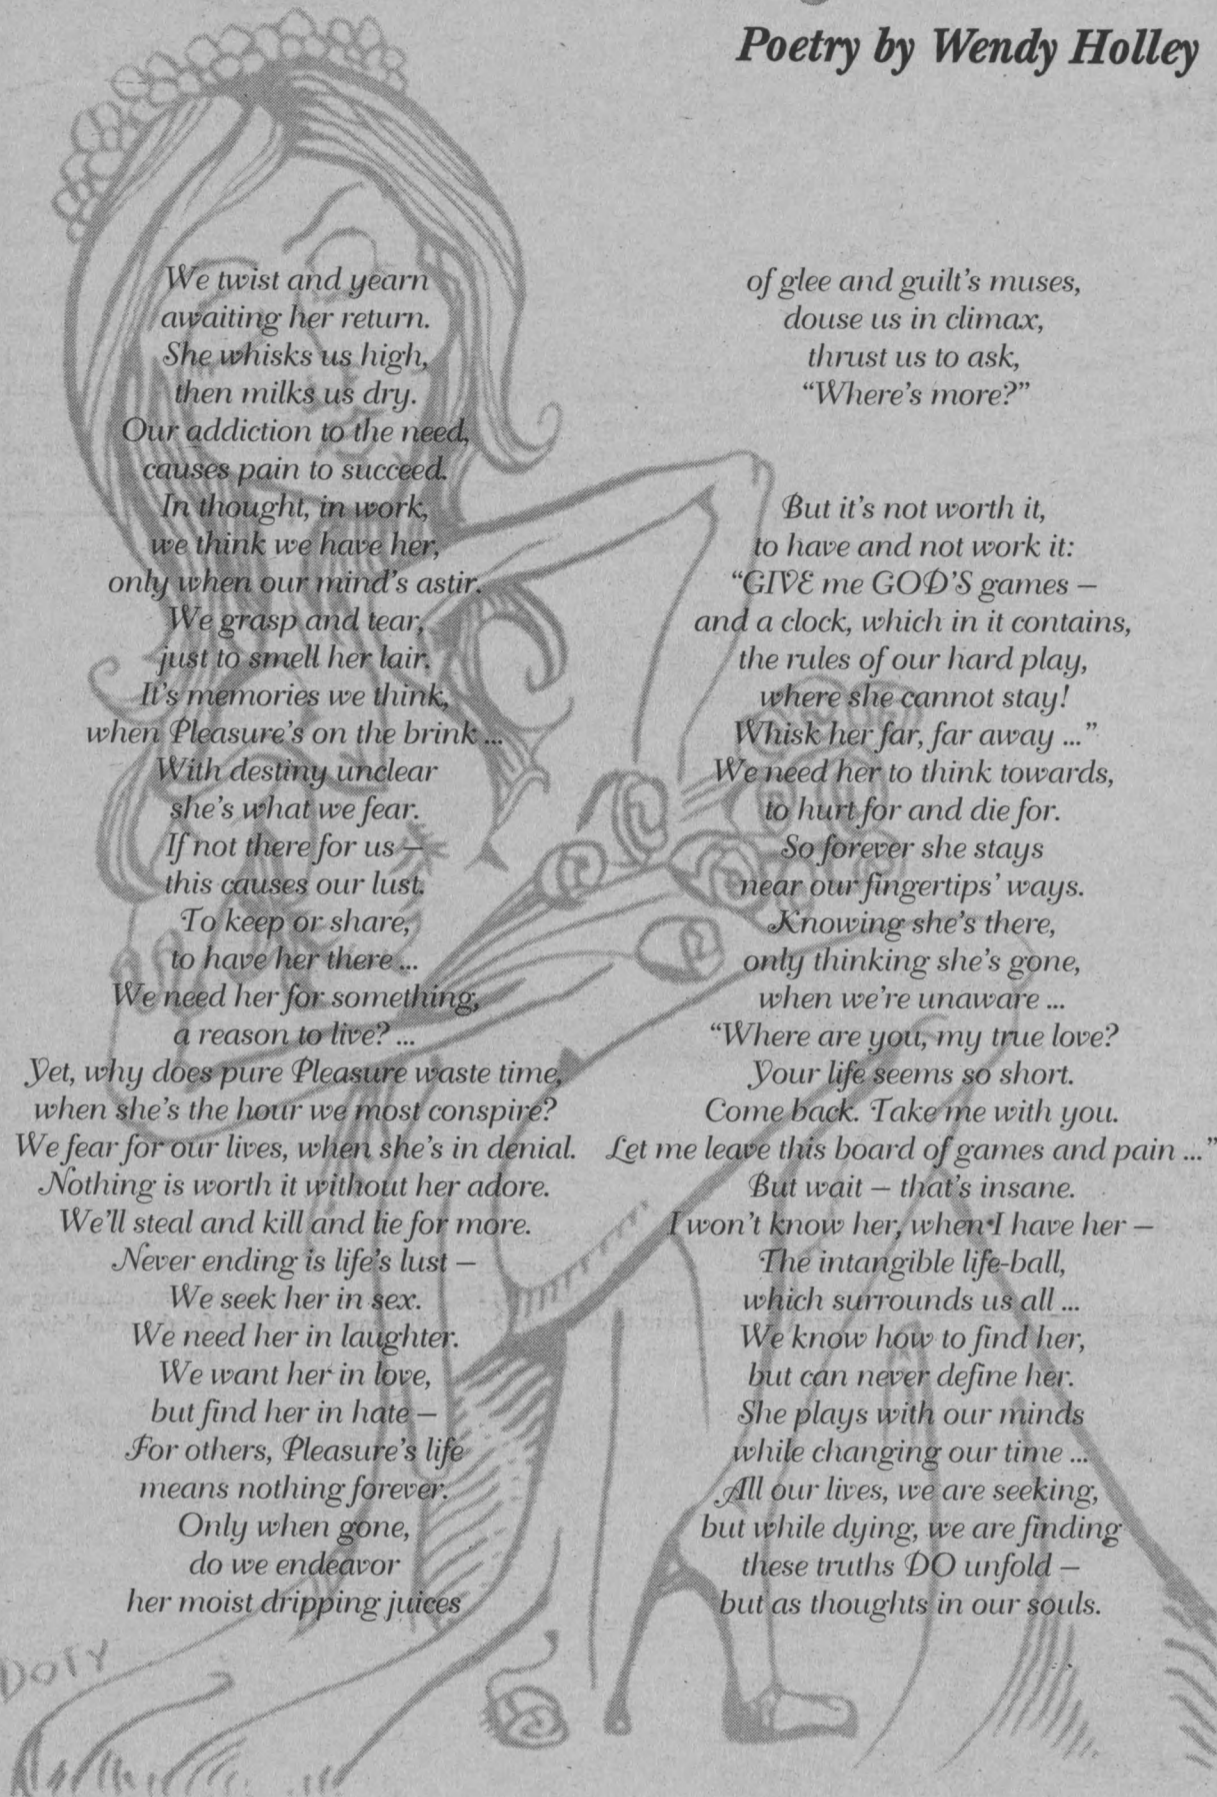 Poetry by Wendy Holley
We twist and yearn
awaiting her return.
She whisks us high,
then milks us dry.
Our addiction to the need,
causes pain to succeed.
In thought, in work,
we think we have her,
only when our mind's astir.
We grasp and tear,
just to smell her lair.
It's memories we think,
when Pleasure's on the brink ...
With destiny unclear
she's what we fear.
If not there for us –
this causes our lust.
To keep or share,
to have her there ...
We need her for something,
a reason to live? ...
Yet, why does pure Pleasure waste time,
when she's the hour we most conspire?
We fear for our lives, when she's in denial.
Nothing is worth it without her adore.
We'll steal and kill and lie for more.
Never ending is life's lust –
We seek her in sex.
We need her in laughter.
We want her in love,
but find her in hate –
For others, Pleasure's life
means nothing forever.
Only when gone,
do we endeavor
her moist dripping juices
of glee and guilt's muses,
douse us in climax,
thrust us to ask,
“Where's more?”
But it's not worth it,
to have and not work it:
“GIVE me GOD'S games –
and a clock, which in it contains,
the rules of our hard play,
where she cannot stay!
Whisk her far, far away ...”
We need her to think towards,
to hurt for and die for.
So forever she stays
near our fingertips' ways.
Knowing she's there,
only thinking she's gone,
when we're unaware ...
“Where are you, my true love?
Your life seems so short.
Come back. Take me with you.
Let me leave this board of games and pain ...”
But wait – that's insane.
I won't know her, when I have her –
The intangible life-ball,
which surrounds us all ...
We know how to find her,
but can never define her.
She plays with our minds
while changing our time ...
All our lives, we are seeking,
but while dying, we are finding
these truths DO unfold –
but as thoughts in our souls.
DOTY